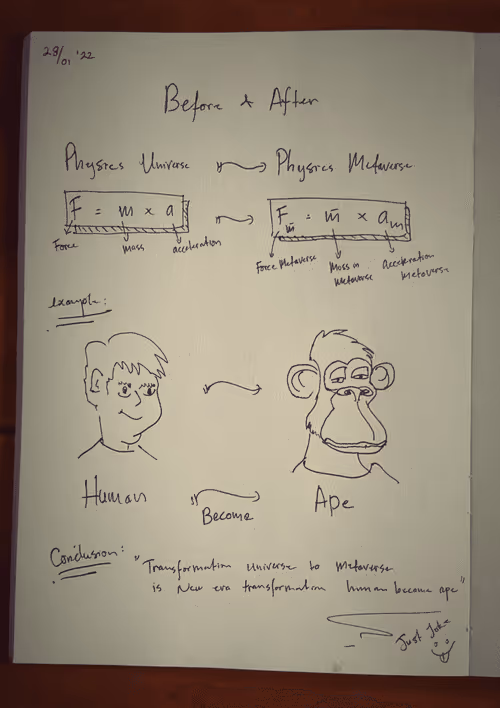 28/01 '22
Before & After
Physics Universe → Physics Metaverse
F = m × a → Fm̄ = m̄ × am
Force mass acceleration
Force Metaverse Mass in Metaverse Acceleration Metaverse
example:
Human → Ape
Become
Conclusion: "Transformation Universe to Metaverse
is New era transformation human become ape"
Just Joke